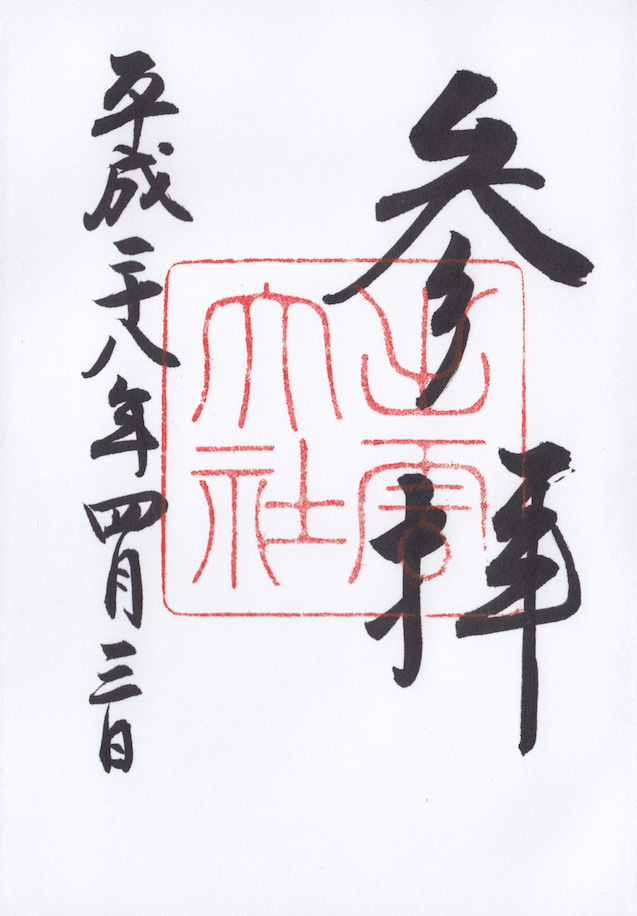 参拝
出雲
大社
平成二十八年四月三日